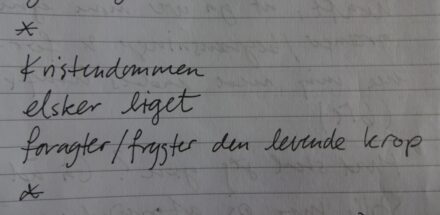 *
Kristendommen
elsker liget
foragter/frygter den levende krop
*